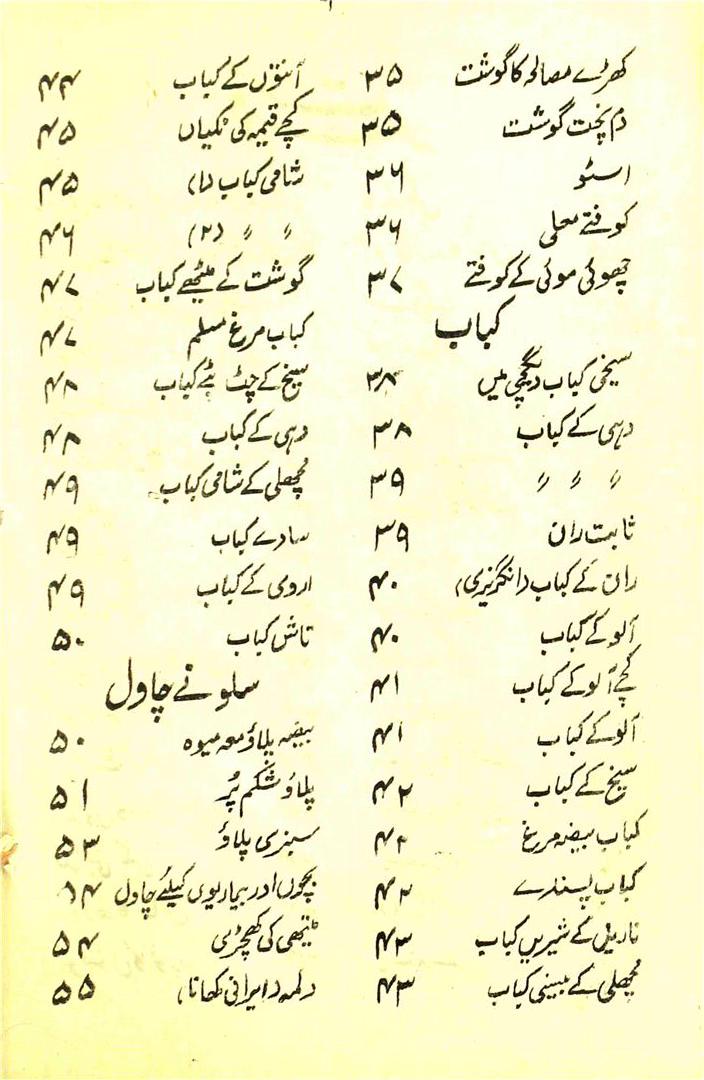 کھڑے مصالحہ کا گوشت ۳۵
دم پخت گوشت ۳۵
اسٹو ۳۶
کوفتے محلی ۳۶
چھوئی موئی کے کوفتے ۳۷
کباب
سیخی کباب دیگچی میں ۳۸
دہی کے کباب ۳۸
〃 〃 〃 ۳۹
ثابت ران ۳۹
ران کے کباب (انگریزی) ۴۰
آلو کے کباب ۴۰
کچے آلو کے کباب ۴۱
آلو کے کباب ۴۱
سیخ کے کباب ۴۲
کباب بیضہ مرغ ۴۲
کباب پسندے ۴۲
ناریل کے شیریں کباب ۴۳
مچھلی کے بیسنی کباب ۴۳
آنتوں کے کباب ۴۴
کچے قیمہ کی ٹکیاں ۴۵
شامی کباب (۱) ۴۵
〃 〃 (۲) ۴۶
گوشت کے میٹھے کباب ۴۷
کباب مرغ مسلم ۴۷
سیخ کے چٹ پٹے کباب ۴۸
دہی کے کباب ۴۸
مچھلی کے شامی کباب ۴۹
سادے کباب ۴۹
اروی کے کباب ۴۹
تاش کباب ۵۰
سلونے چاول
بیضہ پلاؤ معہ میوہ ۵۰
پلاؤ شکم پُر ۵۱
سبزی پلاؤ ۵۳
بچوں اور بیماریوں کیلئے چاول
میتھی کی کھچڑی ۵۴
دلمہ (ایرانی کھانا) ۵۵